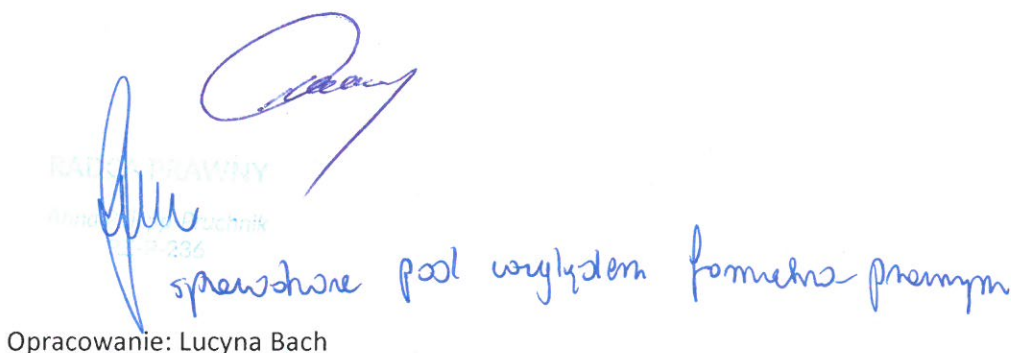 RADCA PRAWNY
Anna Pruchnik
236
sprawdzone pod względem formalno-prawnym
Opracowanie: Lucyna Bach